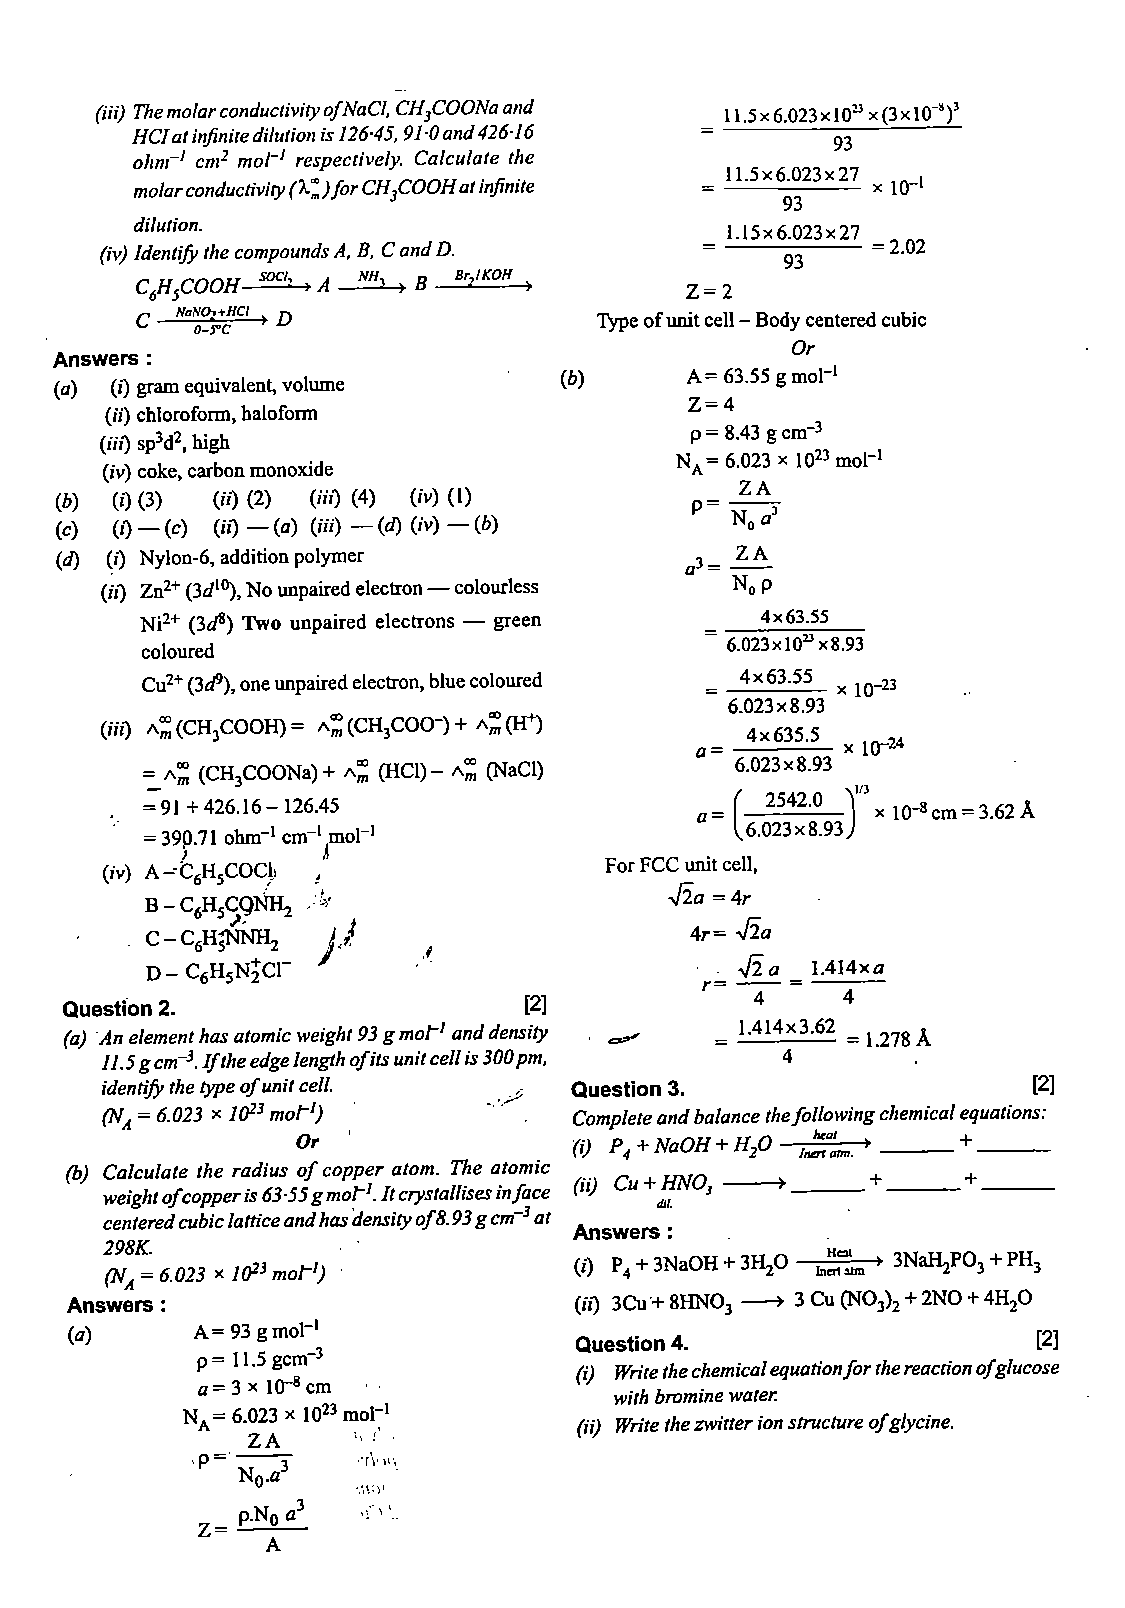 (iii) The molar conductivity of NaCl, CH₃COONa and
HCl at infinite dilution is 126·45, 91·0 and 426·16
ohm⁻¹ cm² mol⁻¹ respectively. Calculate the
molar conductivity (λ∞m) for CH₃COOH at infinite
dilution.
(iv) Identify the compounds A, B, C and D.
C₆H₅COOH —SOCl₂→ A —NH₃→ B —Br₂/KOH→
C —NaNO₂+HCl / 0–5°C→ D
Answers :
(a) (i) gram equivalent, volume
(ii) chloroform, haloform
(iii) sp³d², high
(iv) coke, carbon monoxide
(b) (i) (3) (ii) (2) (iii) (4) (iv) (1)
(c) (i) — (c) (ii) — (a) (iii) — (d) (iv) — (b)
(d) (i) Nylon-6, addition polymer
(ii) Zn²⁺ (3d¹⁰), No unpaired electron — colourless
Ni²⁺ (3d⁸) Two unpaired electrons — green
coloured
Cu²⁺ (3d⁹), one unpaired electron, blue coloured
(iii) ʌ∞m (CH₃COOH) = ʌ∞m (CH₃COO⁻) + ʌ∞m (H⁺)
= ʌ∞m (CH₃COONa) + ʌ∞m (HCl) – ʌ∞m (NaCl)
= 91 + 426.16 – 126.45
= 390.71 ohm⁻¹ cm⁻¹ mol⁻¹
(iv) A – C₆H₅COCl
B – C₆H₅CONH₂
C – C₆H₅NNH₂
D – C₆H₅N₂⁺Cl⁻
Question 2. [2]
(a) An element has atomic weight 93 g mol⁻¹ and density
11.5 g cm⁻³. If the edge length of its unit cell is 300 pm,
identify the type of unit cell.
(N_A = 6.023 × 10²³ mol⁻¹)
Or
(b) Calculate the radius of copper atom. The atomic
weight of copper is 63·55 g mol⁻¹. It crystallises in face
centered cubic lattice and has density of 8.93 g cm⁻³ at
298K.
(N_A = 6.023 × 10²³ mol⁻¹)
Answers :
(a) A = 93 g mol⁻¹
ρ = 11.5 gcm⁻³
a = 3 × 10⁻⁸ cm
N_A = 6.023 × 10²³ mol⁻¹
ρ = Z A / N₀.a³
Z = ρ.N₀ a³ / A
= 11.5×6.023×10²³×(3×10⁻⁸)³ / 93
= 11.5×6.023×27 / 93 × 10⁻¹
= 1.15×6.023×27 / 93 = 2.02
Z = 2
Type of unit cell – Body centered cubic
Or
(b) A = 63.55 g mol⁻¹
Z = 4
ρ = 8.43 g cm⁻³
N_A = 6.023 × 10²³ mol⁻¹
ρ = Z A / N₀ a³
a³ = Z A / N₀ ρ
= 4×63.55 / 6.023×10²³×8.93
= 4×63.55 / 6.023×8.93 × 10⁻²³
a = 4×635.5 / 6.023×8.93 × 10⁻²⁴
a = (2542.0 / 6.023×8.93)^1/3 × 10⁻⁸ cm = 3.62 Å
For FCC unit cell,
√2a = 4r
4r = √2a
r = √2 a / 4 = 1.414×a / 4
= 1.414×3.62 / 4 = 1.278 Å
Question 3. [2]
Complete and balance the following chemical equations:
(i) P₄ + NaOH + H₂O —heat / Inert atm.→ ______ + ______
(ii) Cu + HNO₃ dil. ——→ ______ + ______ + ______
Answers :
(i) P₄ + 3NaOH + 3H₂O —Heat / Inert atm→ 3NaH₂PO₃ + PH₃
(ii) 3Cu + 8HNO₃ ——→ 3 Cu (NO₃)₂ + 2NO + 4H₂O
Question 4. [2]
(i) Write the chemical equation for the reaction of glucose
with bromine water.
(ii) Write the zwitter ion structure of glycine.